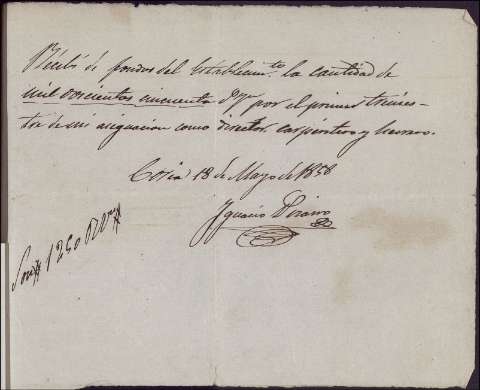 Recibí de fondos del establecim.to la cantidad de
mil doscientos cincuenta por el primer trimes-
tre de mi asignacion como director, carpintero y herrero.
18 de Mayo de 1858
Ignacio
Son # 1250 #